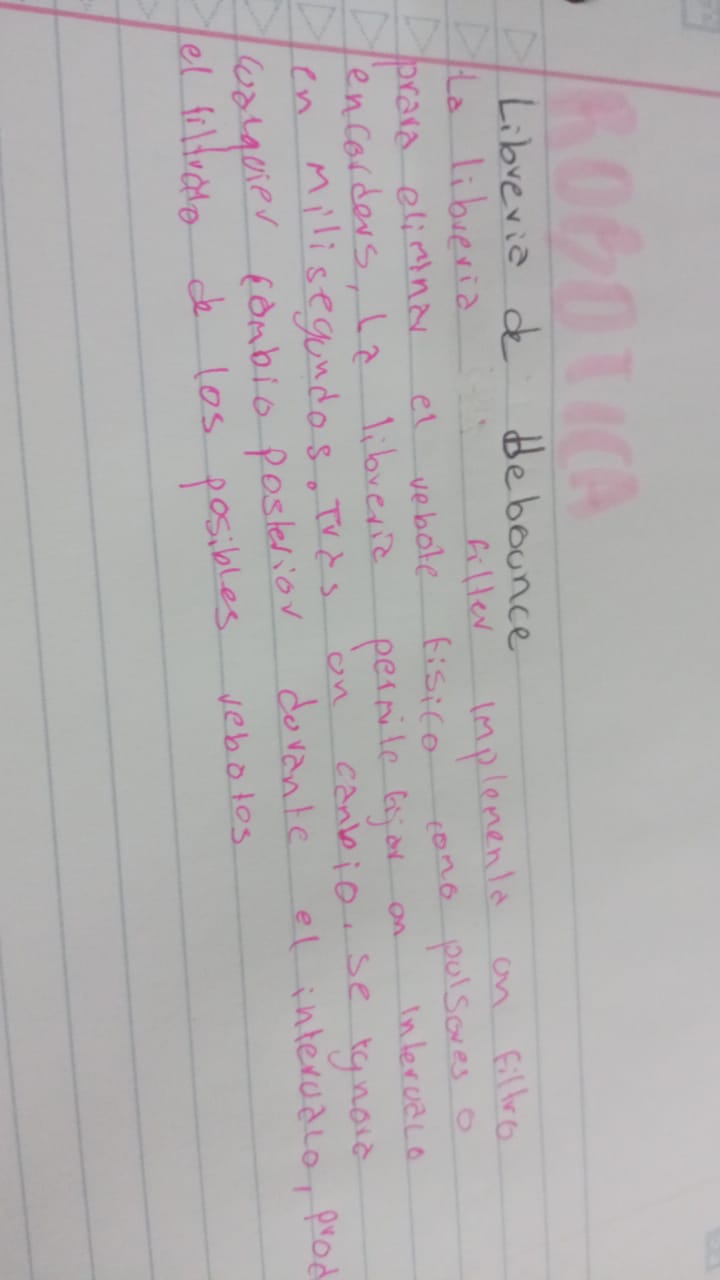 ROBOTICA
Libreria de Debounce
La libreria filter implementa un filtro
prara eliminar el rebote fisico como pulsores o
encorders, La libreria permite fijar un intervalo
en milisegundos. Tras un canbio, se ignora
cualquier cambio posterior durante el intervalo, prod
el filtrado de los posibles rebotos